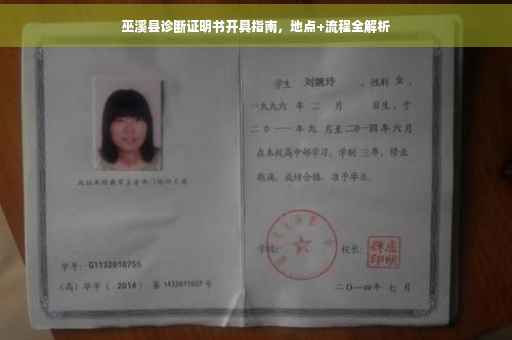 巫溪县诊断证明书开具指南，地点+流程全解析
学生 刘婉玲 ，性别 女 ，
一九九六 年 二 月 日生，于
二〇一一年九 月至二〇一四年六月
在本校高中部学习，学制 三年，修业
期满，成绩合格，准予毕业。
学号： G1132010755
学校： 校长：
(高) 毕字 ( 2014 )
二〇一四年 七 月